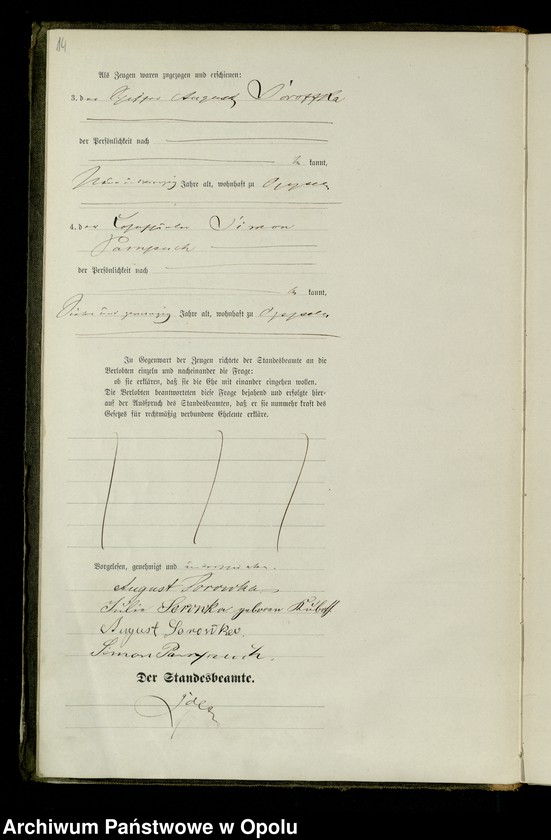 14
Als Zeugen waren zugezogen und erschienen:
3. der August
der Persönlichkeit nach
be kannt,
Jahre alt, wohnhaft zu Oppeln
4. der Simon
Pampuch
der Persönlichkeit nach
be kannt,
Sieben und zwanzig Jahre alt, wohnhaft zu Oppeln
In Gegenwart der Zeugen richtete der Standesbeamte an die
Verlobten einzeln und nacheinander die Frage:
ob sie erklären, daß sie die Ehe mit einander eingehen wollen.
Die Verlobten beantworteten diese Frage bejahend und erfolgte hier-
auf der Ausspruch des Standesbeamten, daß er sie nunmehr kraft des
Gesetzes für rechtmäßig verbundene Eheleute erkläre.
Vorgelesen, genehmigt und unterschrieben.
August
Julie geboren
August
Simon Pampuch.
Der Standesbeamte.
Archiwum Państwowe w Opolu